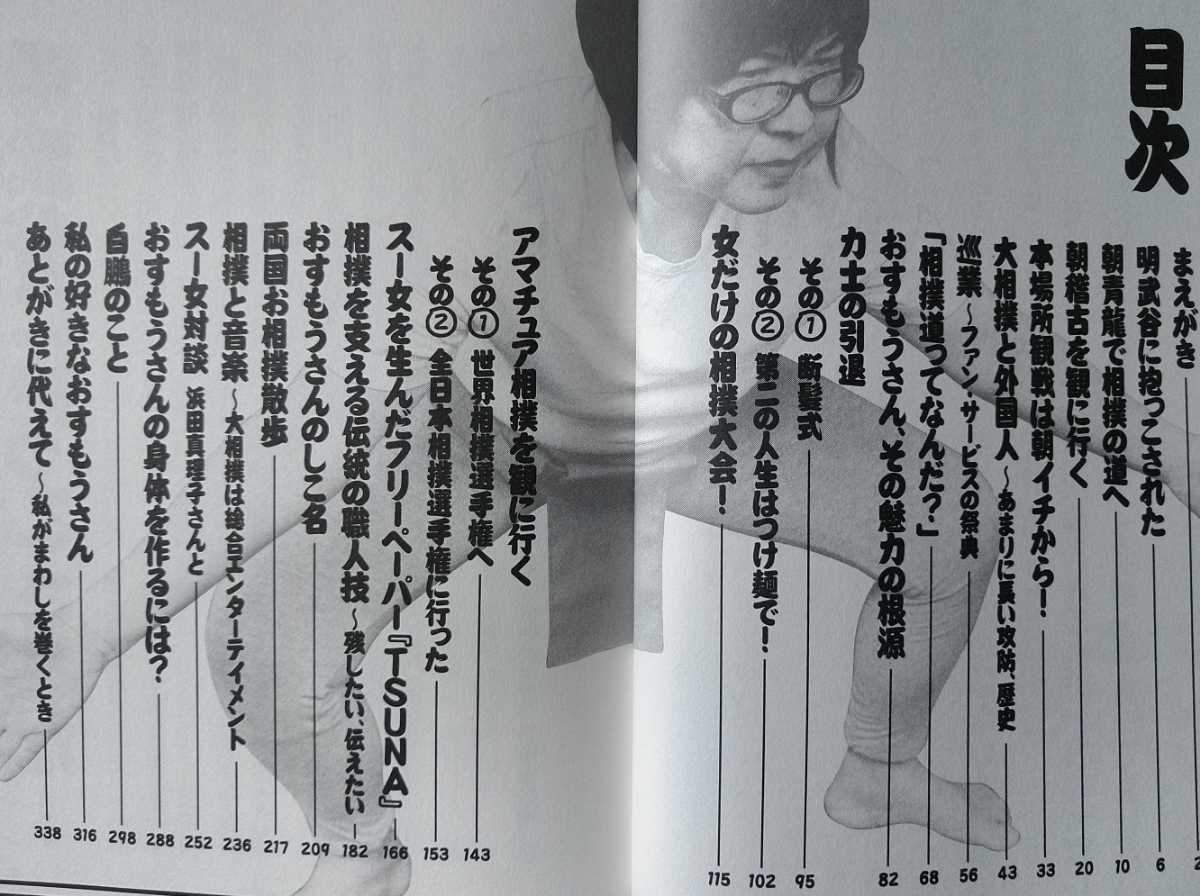 目次
まえがき 2
明武谷に抱っこされた 6
朝青龍で相撲の道へ 10
朝稽古を観に行く 20
本場所観戦は朝イチから! 33
大相撲と外国人 〜あまりに長い攻防、歴史 43
巡業 〜ファン・サービスの祭典 56
「相撲道ってなんだ?」 68
おすもうさん、その魅力の根源 82
力士の引退
その① 断髪式 95
その② 第二の人生はつけ麺で! 102
女だけの相撲大会! 115
アマチュア相撲を観に行く
その① 世界相撲選手権へ 143
その② 全日本相撲選手権に行った 153
スー女を生んだフリーペーパー『TSUNA』 166
相撲を支える伝統の職人技 〜残したい、伝えたい 182
おすもうさんのしこ名 209
両国お相撲散歩 217
相撲と音楽 〜大相撲は総合エンターティメント 236
スー女対談 浜田真理子さんと 252
おすもうさんの身体を作るには? 288
白鵬のこと 298
私の好きなおすもうさん 316
あとがきに代えて 〜私がまわしを巻くとき 338